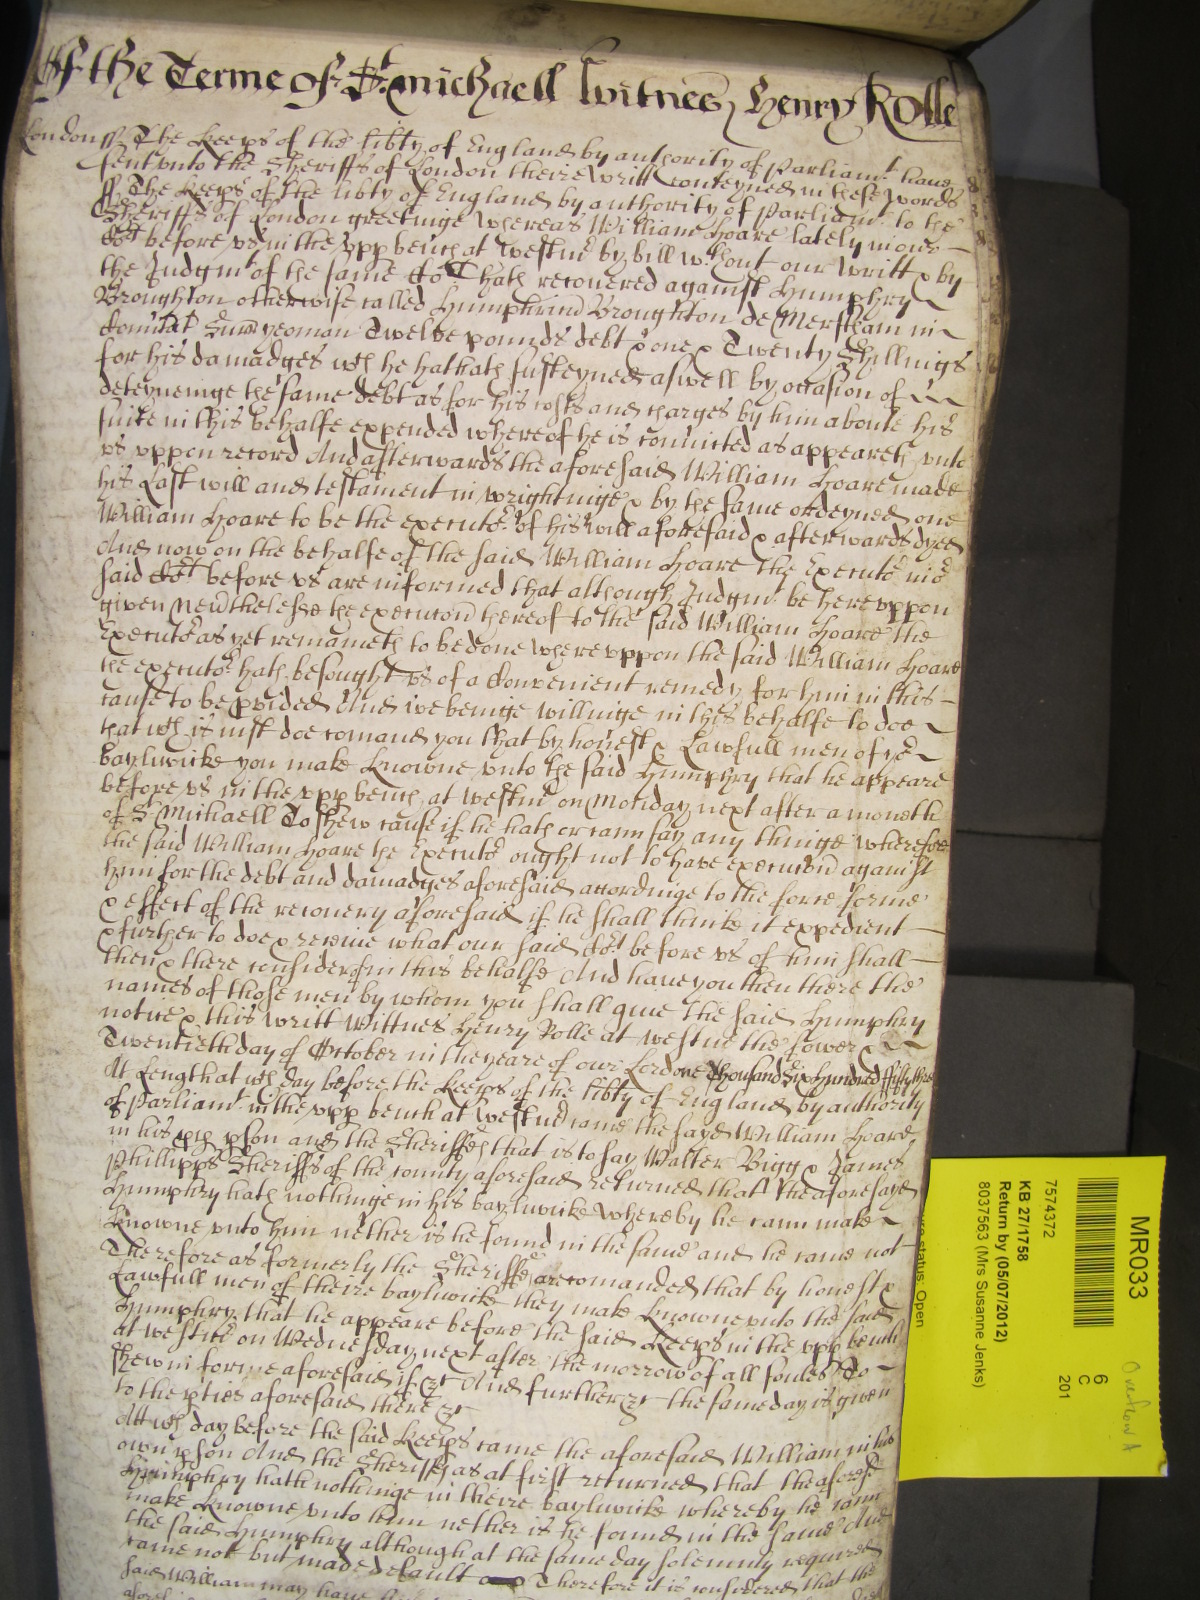 Of the Terme of St. Michaell Witnes Henry Rolle
London ss The Keeps of the libty of England by authority of Parliamt. have
sent unto the Sheriffs of London theire Writt conteyned in these words
ss. The Keeps of the libty of England by authority of Parliamt. to the
Sheriffs of London greetinge Whereas William Hoare lately in our
Cort before us in the upp bench at Westmr by bill wthout our Writt & by
the Judgmt of the same Cort hath recovered against Humphry
Broughton otherwise called Humphrum Broughton de Merstham in
Comitat Surr yeoman Twelve pounds debt & one & Twenty Shillings
for his damadges wch he hathath susteyned aswell by occasion of
deteyneinge the same debt as for his costs and charges by him aboute his
suite in this behalfe expended whereof he is convicted as appeareth unto
us uppon record And afterwards the aforesaid William Hoare made
his Last will and testament in wrightinge & by the same ordeyned one
William Hoare to be the executor of his will aforesaid & afterwards dyed
And now on the behalfe of the said William Hoare the Executor in or
said Cort before us are informed that although Judgmt be hereuppon
given nevthelesse the execucon thereof to the said William Hoare the
Executor as yet remaineth to be done whereuppon the said William Hoare
the executor hath besought us of a Convenient remedy for him in this
cause to be pvided And we beinge willinge in this behalfe to doe
that wch is just doe comand you that by honest & Lawfull men of yor
bayliwicke you make Knowne unto the said Humphry that he appeare
before us in the upp bench at Westmr on Monday next after a moneth
of St Michaell To shew cause if he hath or cann say any thinge wherefore
the said William Hoare the Executor ought not to have execucon against
him for the debt and damadges aforesaid accordinge to the force forme
& effect of the recovery aforesaid if he shall thinke it expedient
& further to doe & receive what our said Cort before us of him shall
then & there consider of in this behalfe And have you then there the
names of those men by whom you shall give the said Humphry
notice & this writt Wittnes Henry Rolle at Westmr the fower &
Twentieth day of October in the yeare of our Lord one Thousand Six Hundred ffifty three
At Length at wch day before the Keeps of the libty of England by authority
of Parliamt in the upp bench at Westmr came the sayd William Hoare
in his pp pson and the Sheriffes that is to say Walter Bigg & James
Phillipps Sheriffs of the county aforesaid returned that the aforesayd
Humphry hath nothinge in his bayliwicke whereby he cann make
Knowne unto him nether is he found in the same and he came not
Therefore as formerly the Sheriffes are comanded that by honest &
Lawfull men of theire bayliwicke they make Knowne unto the said
Humphry that he appeare before the said Keeps in the upp bench
at Westmr on Wednesday next after the morrow of all soules To
shew in forme aforesaid if &c And further &c the same day is given
to the pties aforesaid there &c
Att wch day before the said Keeps came the aforesaid William in his
own pson And the Sheriffs as at first returned that the aforesd
Humphry hath nothinge in theire bayliwicke whereby he cann
make Knowne unto him nether is he found in the same And
the said Humphry although at the same day solemnly required
came not but made default Therefore it is considered that the
said William may have
MR033
6
C
201
Overflow A
7574372
KB 27/1758
Return by (05/07/2012)
8037563 (Mrs Susanne Jenks)
status: Open